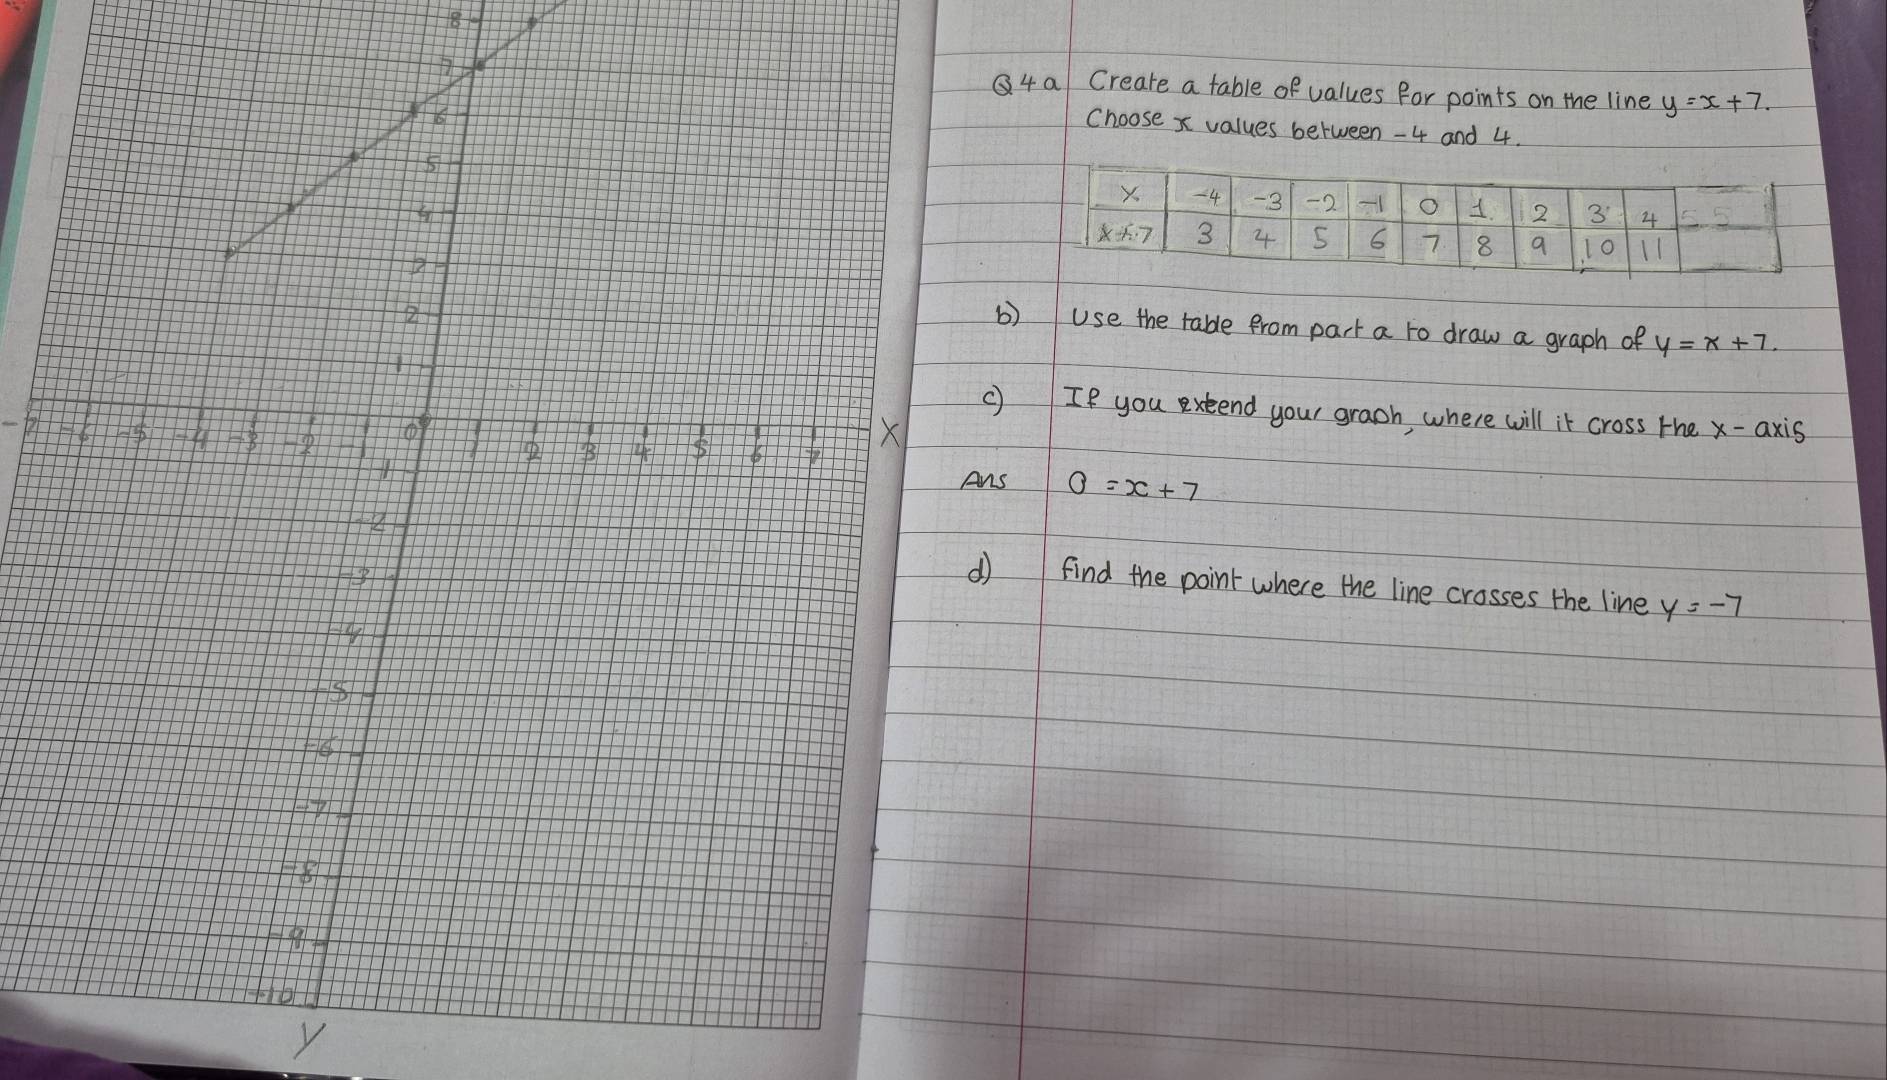 8
7
6
5
4
3
2
1
-7 -6 -5 -4 -3 -2 -1 0 1 2 3 4 5 6 7 X
-1
-2
-3
-4
-5
-6
-7
-8
-9
-10
y
Q4a Create a table of values for points on the line y = x + 7.
Choose x values between -4 and 4.
x -4 -3 -2 -1 0 1 2 3 4 5 5
x+7 3 4 5 6 7 8 9 10 11
b) Use the table from part a to draw a graph of y = x + 7.
c) If you extend your graph, where will it cross the x-axis
Ans 0 = x + 7
d) find the point where the line crosses the line y = -7